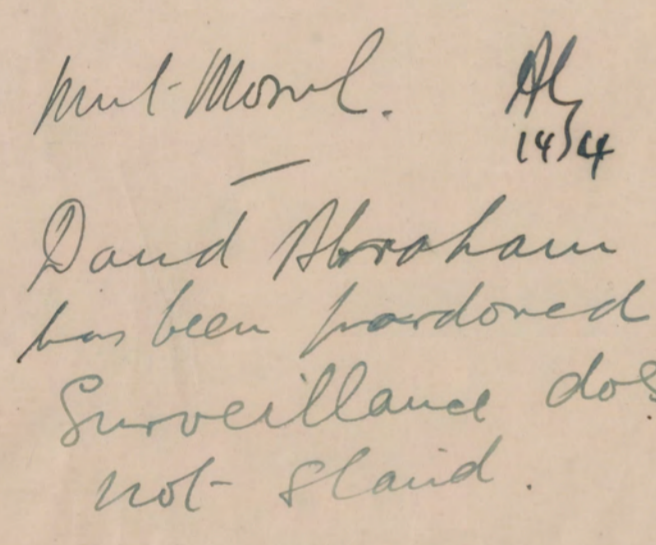 AL
14/4
David Abraham
has been pardoned
Surveillance does
not stand.